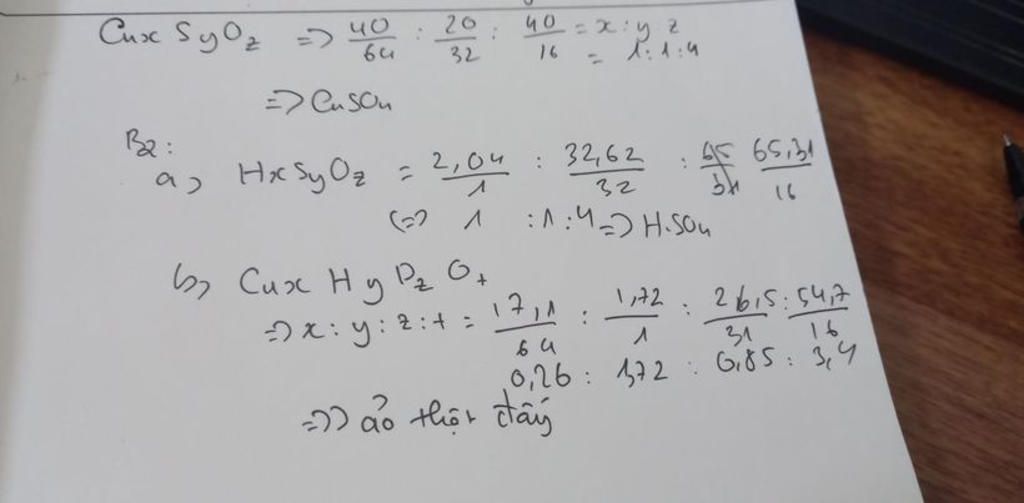 CuxSyOz => 40/64 : 20/32 : 40/16 = x:y:z
= 1:1:4
=> CuSO4
B2:
a, HxSyOz = 2,04/1 : 32,62/32 : 65,31/16
<=> 1 : 1 : 4 => H.SO4
b, Cux Hy Pz Ot
=> x : y : z : t = 17,1/64 : 1,72/1 : 26,5/31 : 54,7/16
0,26 : 1,72 : 0,85 : 3,4
=>> ảo thật đấy